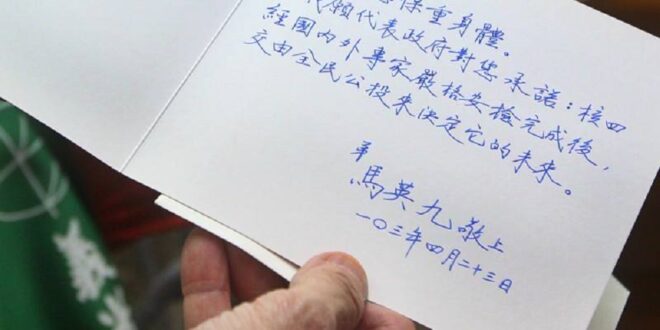 保重身體。
願代表政府對您承諾：核四
經國內外專家嚴格安檢完成後，
交由全民公投来決定它的未来。
馬英九敬上
一〇三年四月二十三日